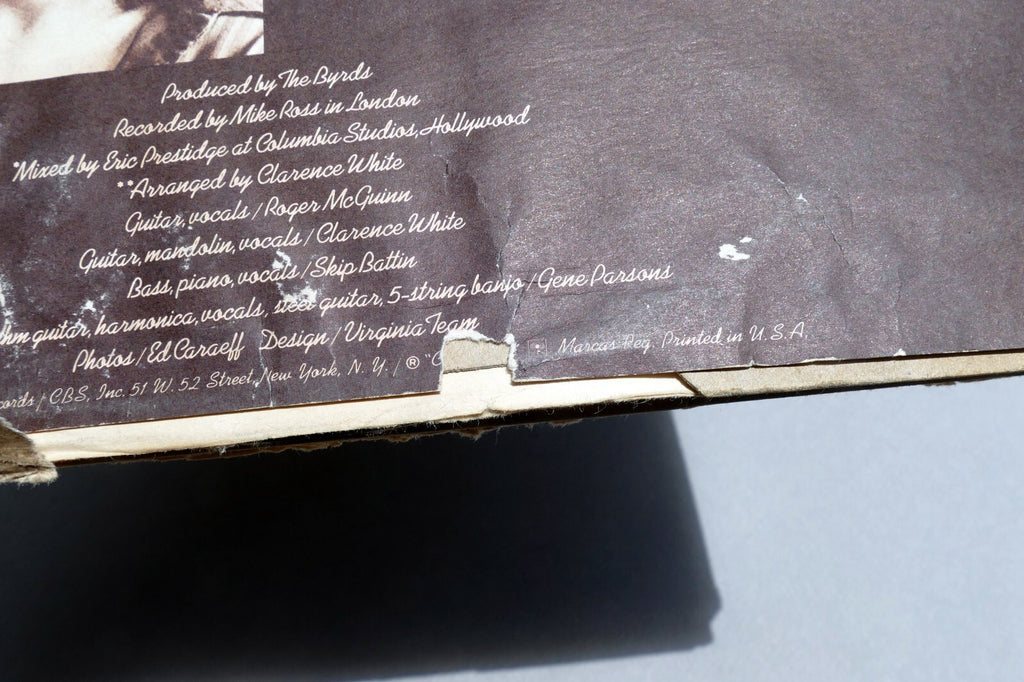 Produced by The Byrds
Recorded by Mike Ross in London
*Mixed by Eric Prestidge at Columbia Studios, Hollywood
**Arranged by Clarence White
Guitar, vocals / Roger McGuinn
Guitar, mandolin, vocals / Clarence White
Bass, piano, vocals / Skip Battin
hm guitar, harmonica, vocals, steel guitar, 5-string banjo / Gene Parsons
Photos / Ed Caraeff Design / Virginia Team
ords / CBS, Inc. 51 W. 52 Street, New York, N. Y. / ® "C Marcas Reg. Printed in U.S.A.